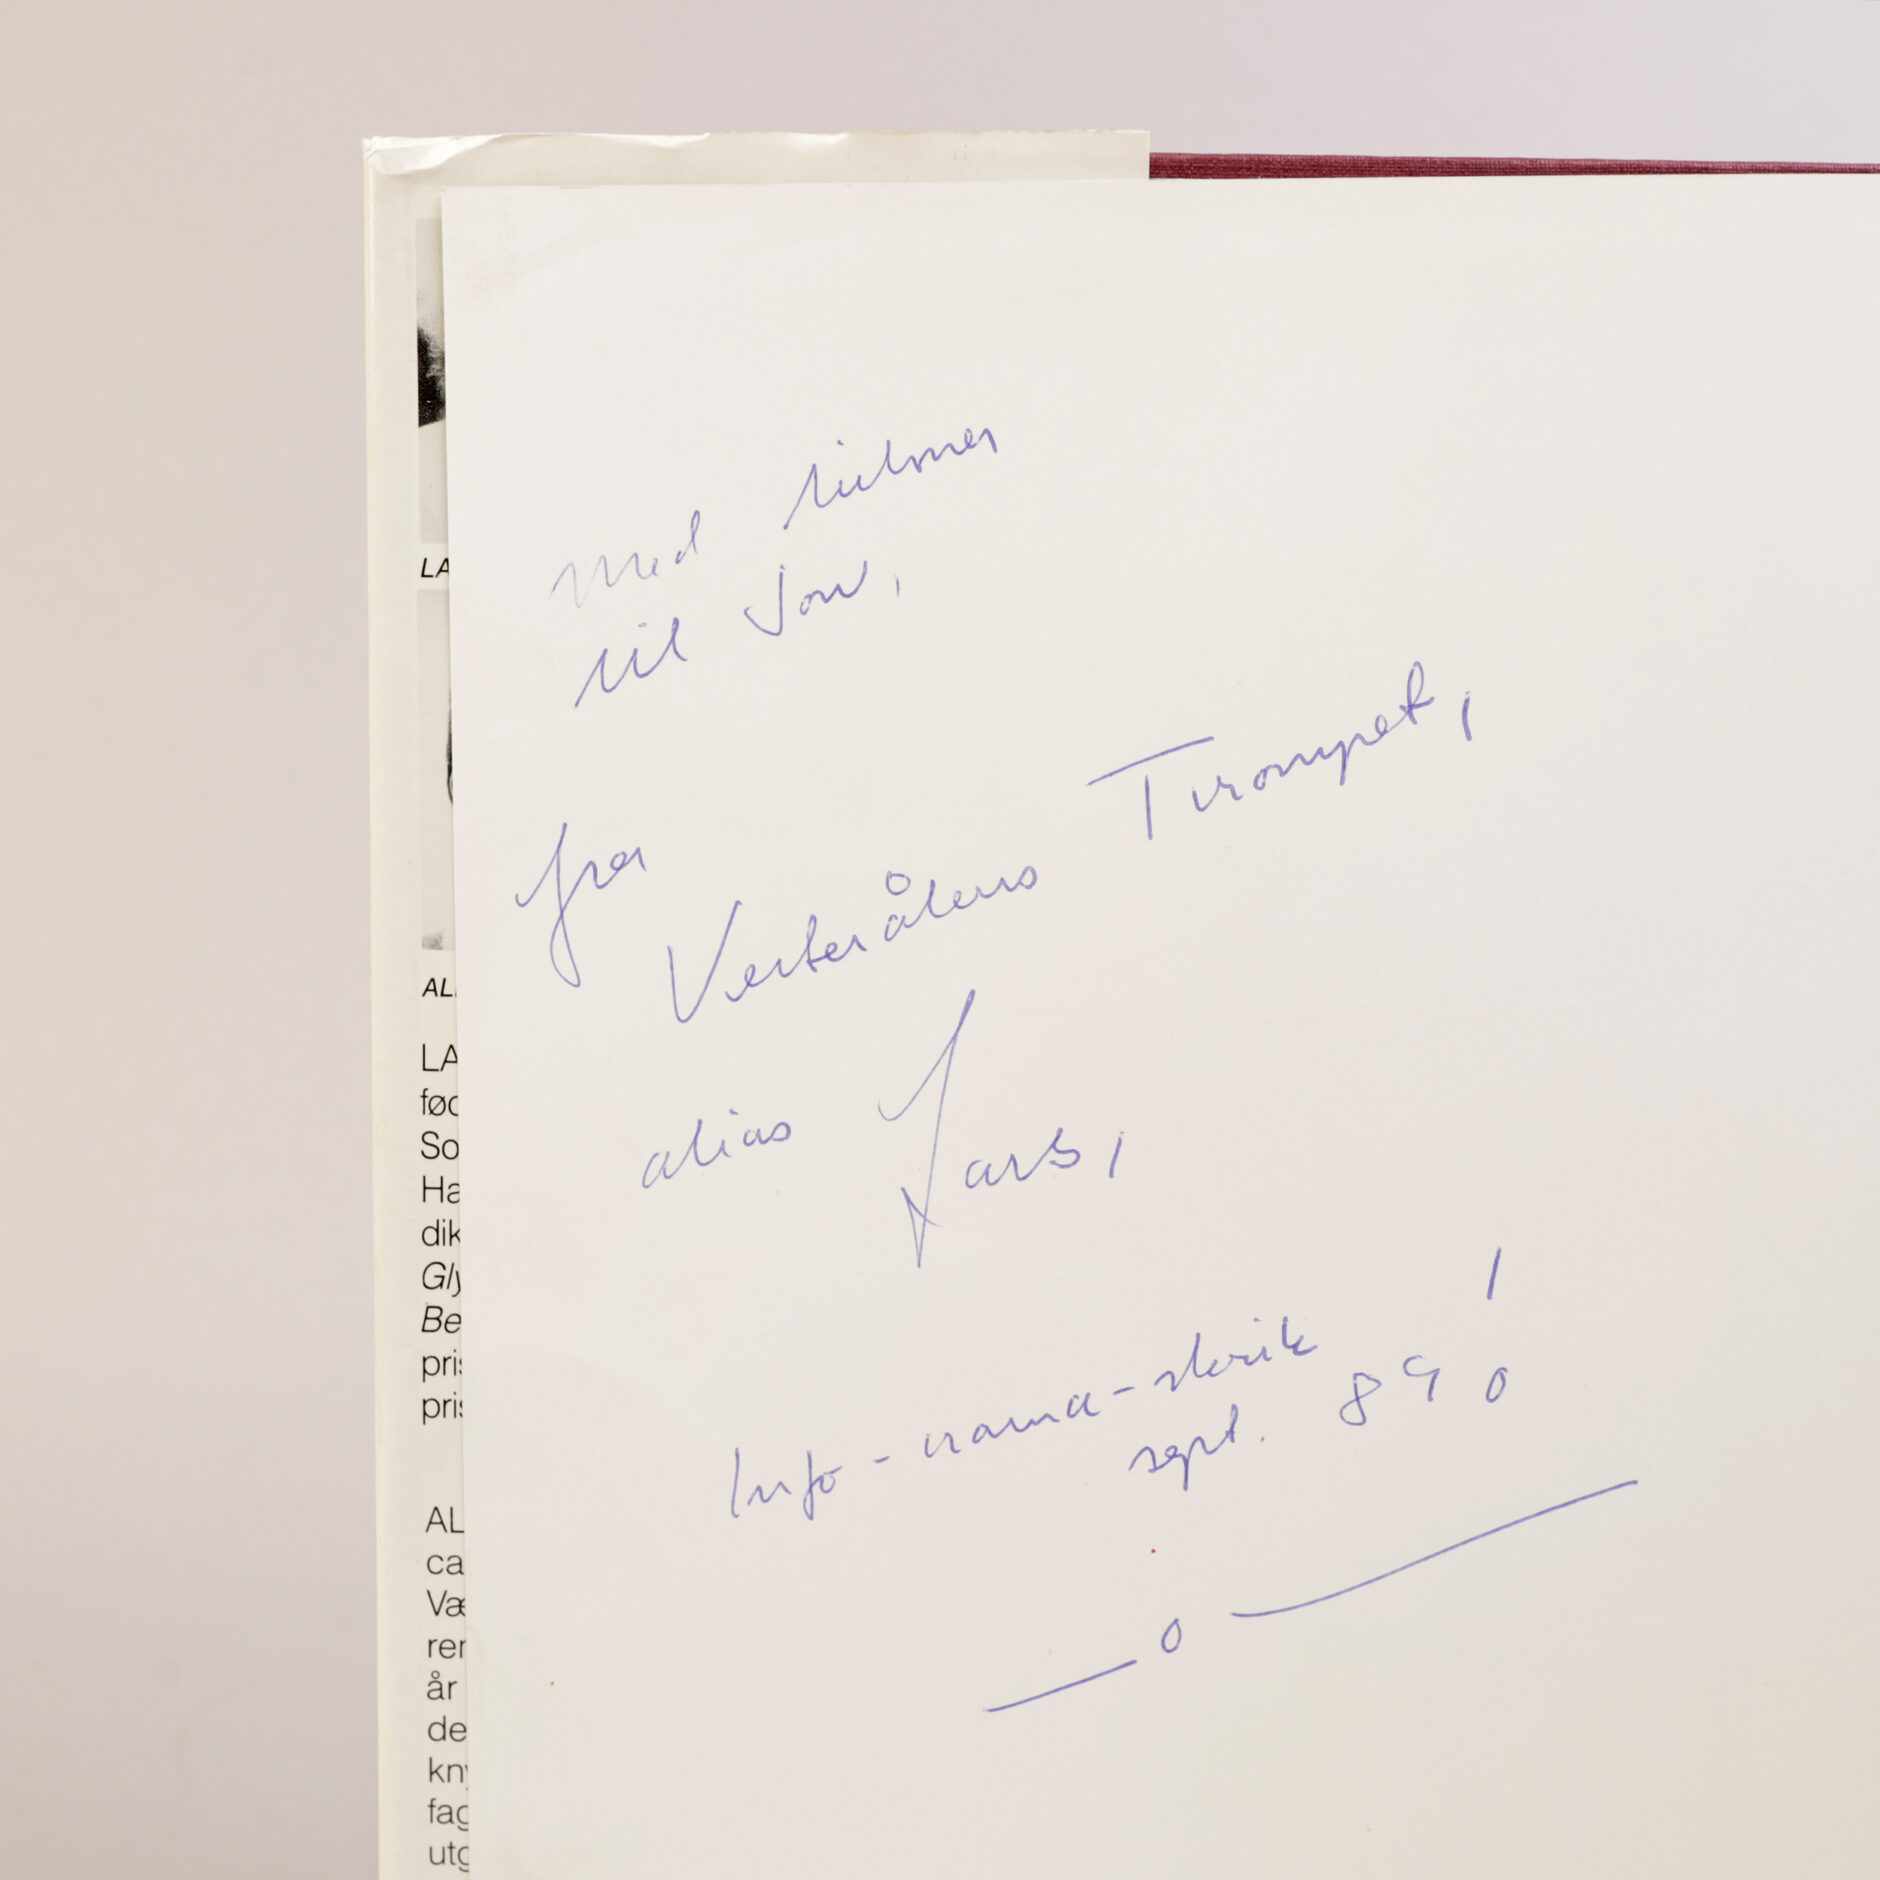 med hilsner
til Jon,
fra
Vesterålens Trompet,
alias Lars,
Info-rama-skrik
sept. 89!
LA
AL
LA
fød
So
Ha
dik
Gly
Be
pris
pris
AL
ca
Væ
rer
år
de
kny
fag
utg